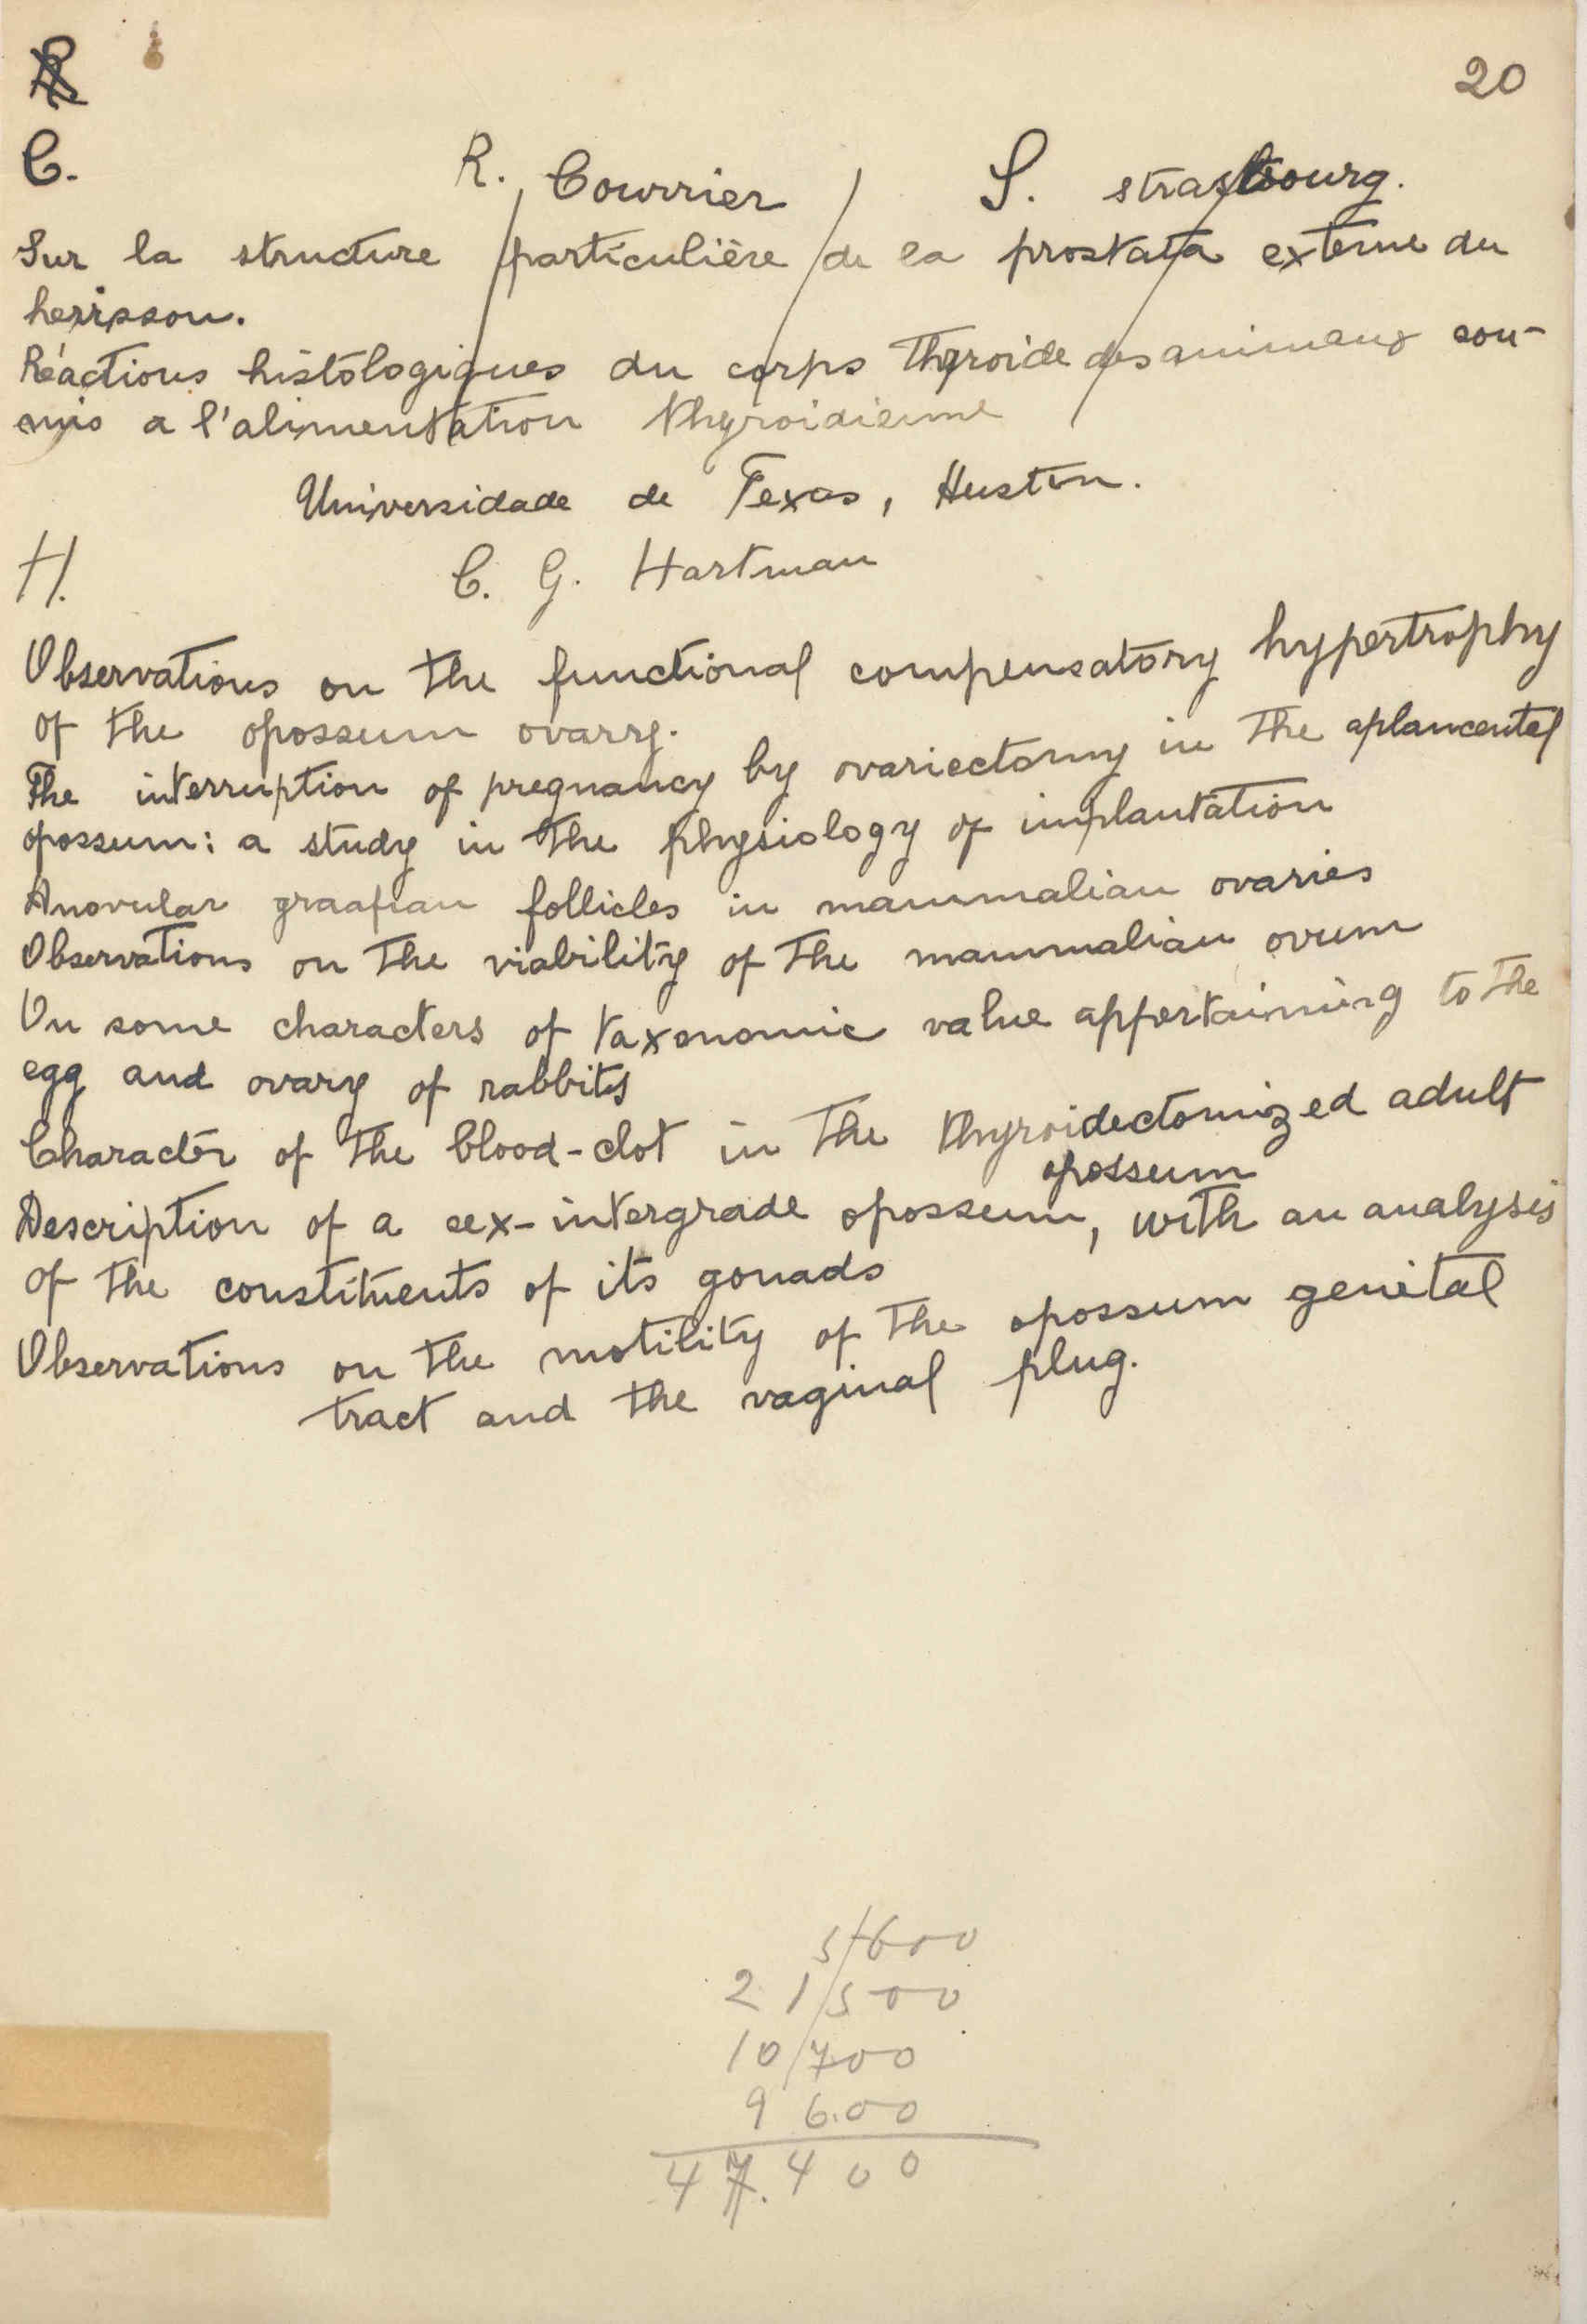 20
C.
R. Courrier S. strasbourg.
Sur la structure particulière de la prostata externe du
herisson.
Réactions histologiques du corps thyroide des animaux sou-
mis a l'alimentation thyroidienne
Universidade de Texas, Huston.
H.
C. G. Hartman
Observations on the functional compensatory hypertrophy
of the opossum ovarry.
The interruption of pregnancy by ovariectomy in the aplancental
opossum: a study in the physiology of implantation
Anovular graafian follicles in mammalian ovaries
Observations on the viability of the mammalian ovum
On some characters of taxonomic value appertaining to the
egg and ovary of rabbits
Character of the blood-clot in the thyroidectomized adult
opossum
Description of a sex-intergrade opossum, with an analysis
of the constituents of its gonads
Observations on the motility of the opossum genital
tract and the vaginal plug.
5/600
21/500
10/700
9 6.00
47.400